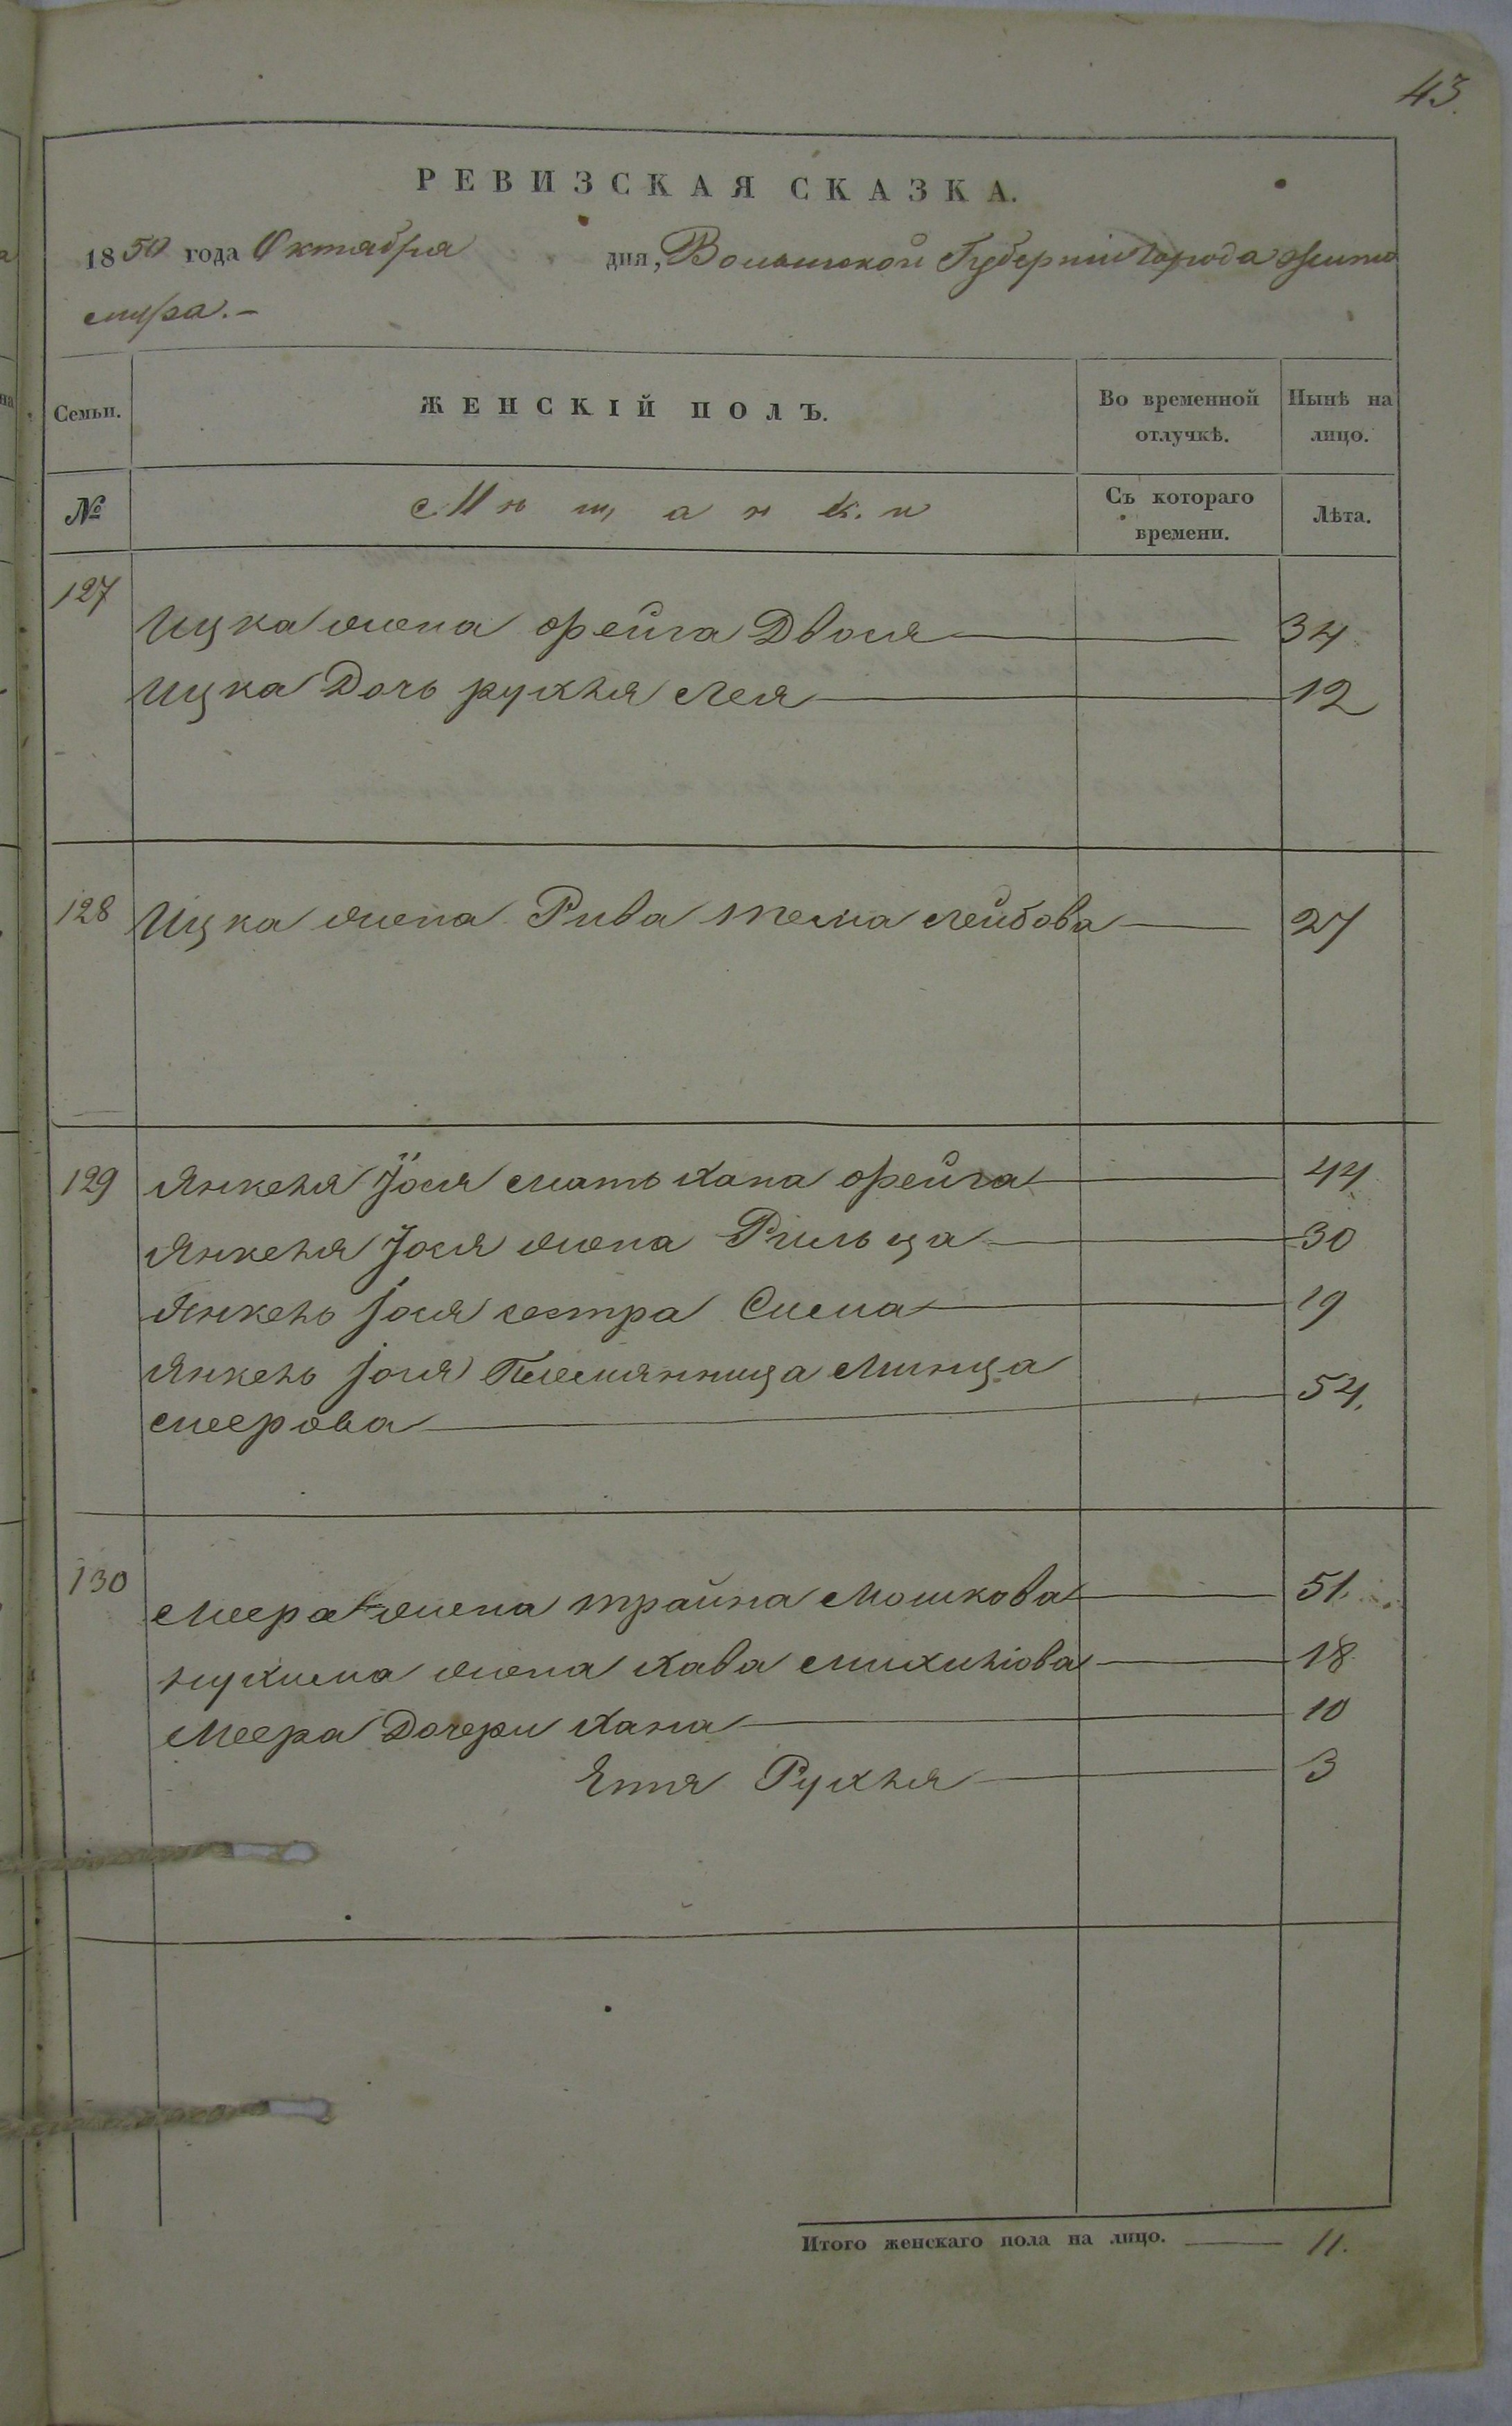 43.
РЕВИЗСКАЯ СКАЗКА.
1850 года Октября дня, Волынской Губерніи города Жито
мира.-
Семьи. ЖЕНСКІЙ ПОЛЪ. Во временной отлучкѣ. Нынѣ на лицо.
№ Мѣщанки Съ котораго времени. Лѣта.
127
Ицка жена Фейга Двося 34
Ицка Дочь рухля Лея 12
128 Ицка жена Рива тема Лейбова 27
129 Янкеля Іося мать хана Фейга 44
Янкеля Іося жена Рильца 30
Янкель Іося сестра Сима 19
Янкель Іося Племянница Минца
Меерова 54.
130
Меера жена трайна Мошкова 51.
нухима жена хава Михилiова 18
Меера Дочери хана 10
Еття Рухля 3
Итого женскаго пола на лицо. 11.